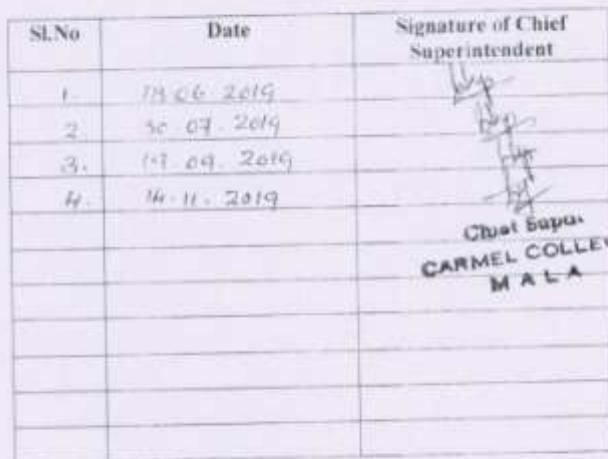 Sl.No Date Signature of Chief
Superintendent
1. 06 2019
2. 30 . 07 . 2019
3. 09 . 2019
4. 14 . 11 . 2019
Chief Supdt
CARMEL COLLE
MALA